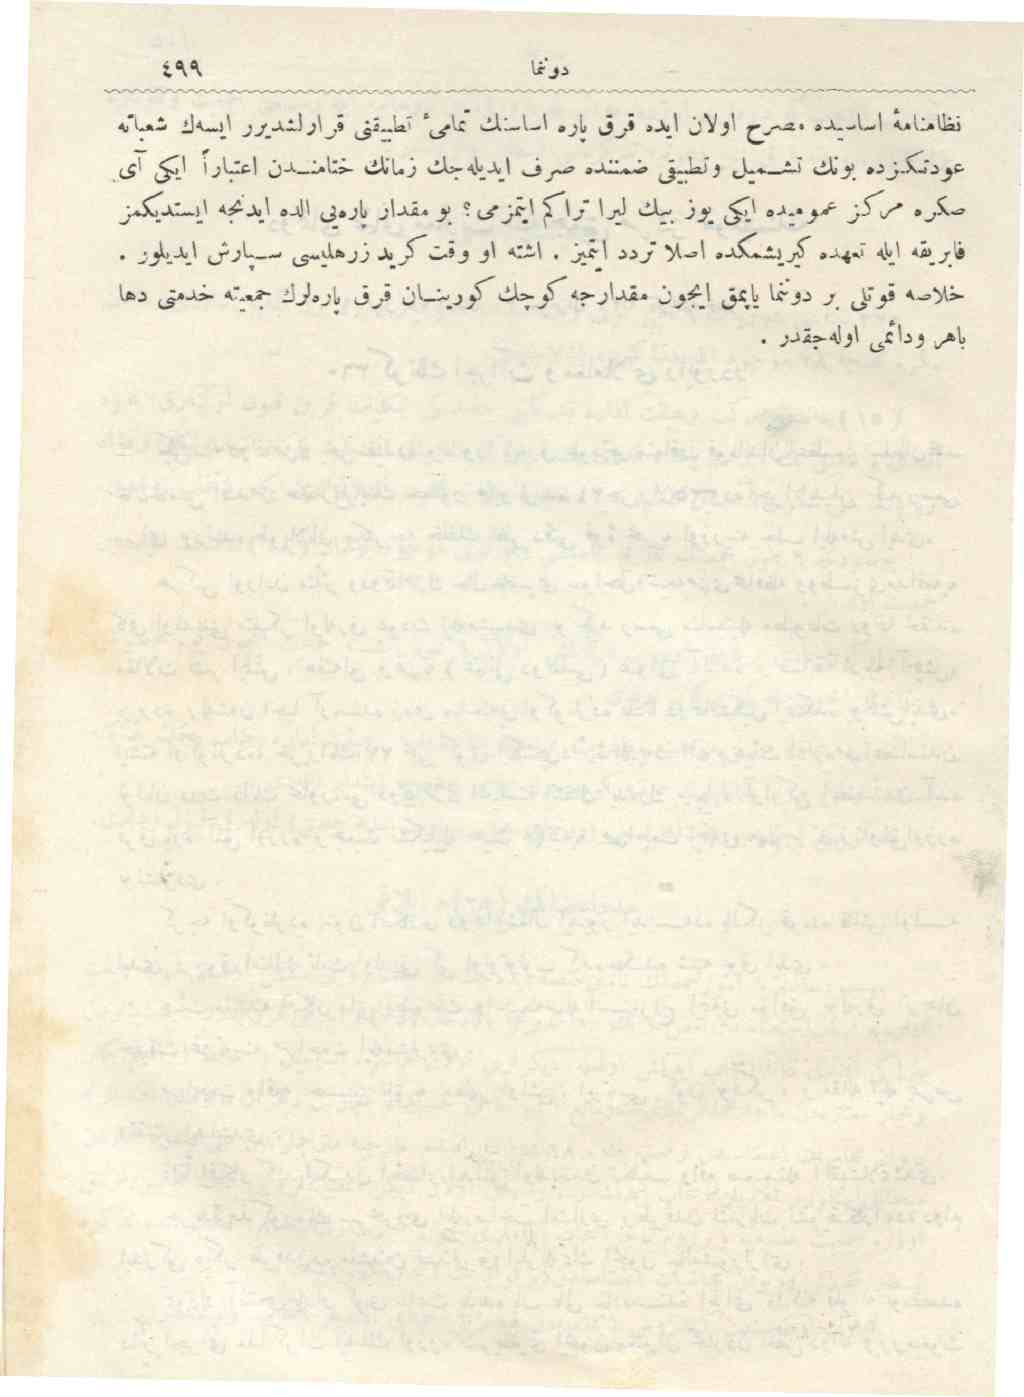 دوننما ٤٩٩
نظامنامهٔ اساسیده مصرح اولان ایده قرق پاره اساسنك تمامیٔ تطبیقنی قرارلشدیرر ایسەك شعباته
عودتكزده بونك تشـمیل وتطبیقی ضمننده صرف ایدیله‌جك زمانك ختامنــدن اعتباراً ایكی آی
صكره مركز عمومیده ایكی یوز بیك لیرا تراكم ایتمزمی؟ بو مقدار پاره‌یی الده ایدنجه ایستدیكمز
فابریقه ایله تعهده كیریشمكده اصلا تردد ایتمیز . اشته او وقت كرید زرهلیسی ســپارش ایدیلور .
خلاصه قوتلی بر دوننما یاپمق ایچون مقدارجه كوچك كورینــان قرق پاره‌لرك جمعیته خدمتی دها
باهر ودائمی اوله‌جقدر .